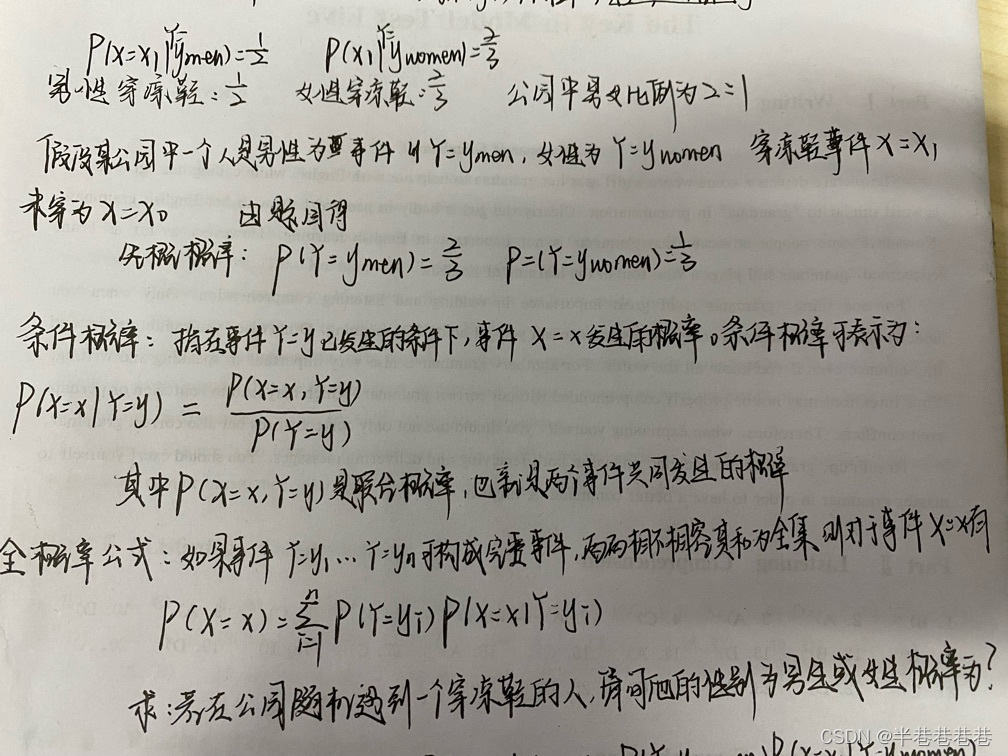 P(X=x₁|Y=y_men)=1/2 P(x₁|Y=y_women)=2/3
男性穿凉鞋:1/2 女性穿凉鞋:2/3 公园中男女比例为2:1
假设某公园中一个人是男性为事件 Y=y_men, 女性为 Y=y_women 穿凉鞋事件 X=x₁
未穿为 X=x₀ 由题目得
先概概率: P(Y=y_men)=2/3 P=(Y=y_women)=1/3
条件概率: 指在事件 Y=y 已发生的条件下, 事件 X=x 发生的概率。条件概率可表示为:
P(X=x|Y=y) = P(X=x, Y=y) / P(Y=y)
其中 P(X=x, Y=y) 是联合概率, 也就是两个事件共同发生的概率
全概率公式: 如果事件 Y=y₁... Y=yn可构成完整事件, 两两相不相容其和为全集 则对于事件 X=x有
P(X=x) = Σⁿᵢ₌₁ P(Y=yi) P(X=x|Y=yi)
求: 若在公园随机遇到一个穿凉鞋的人, 请问他的性别为男生或女生概率为?
CSDN @半巷巷巷巷